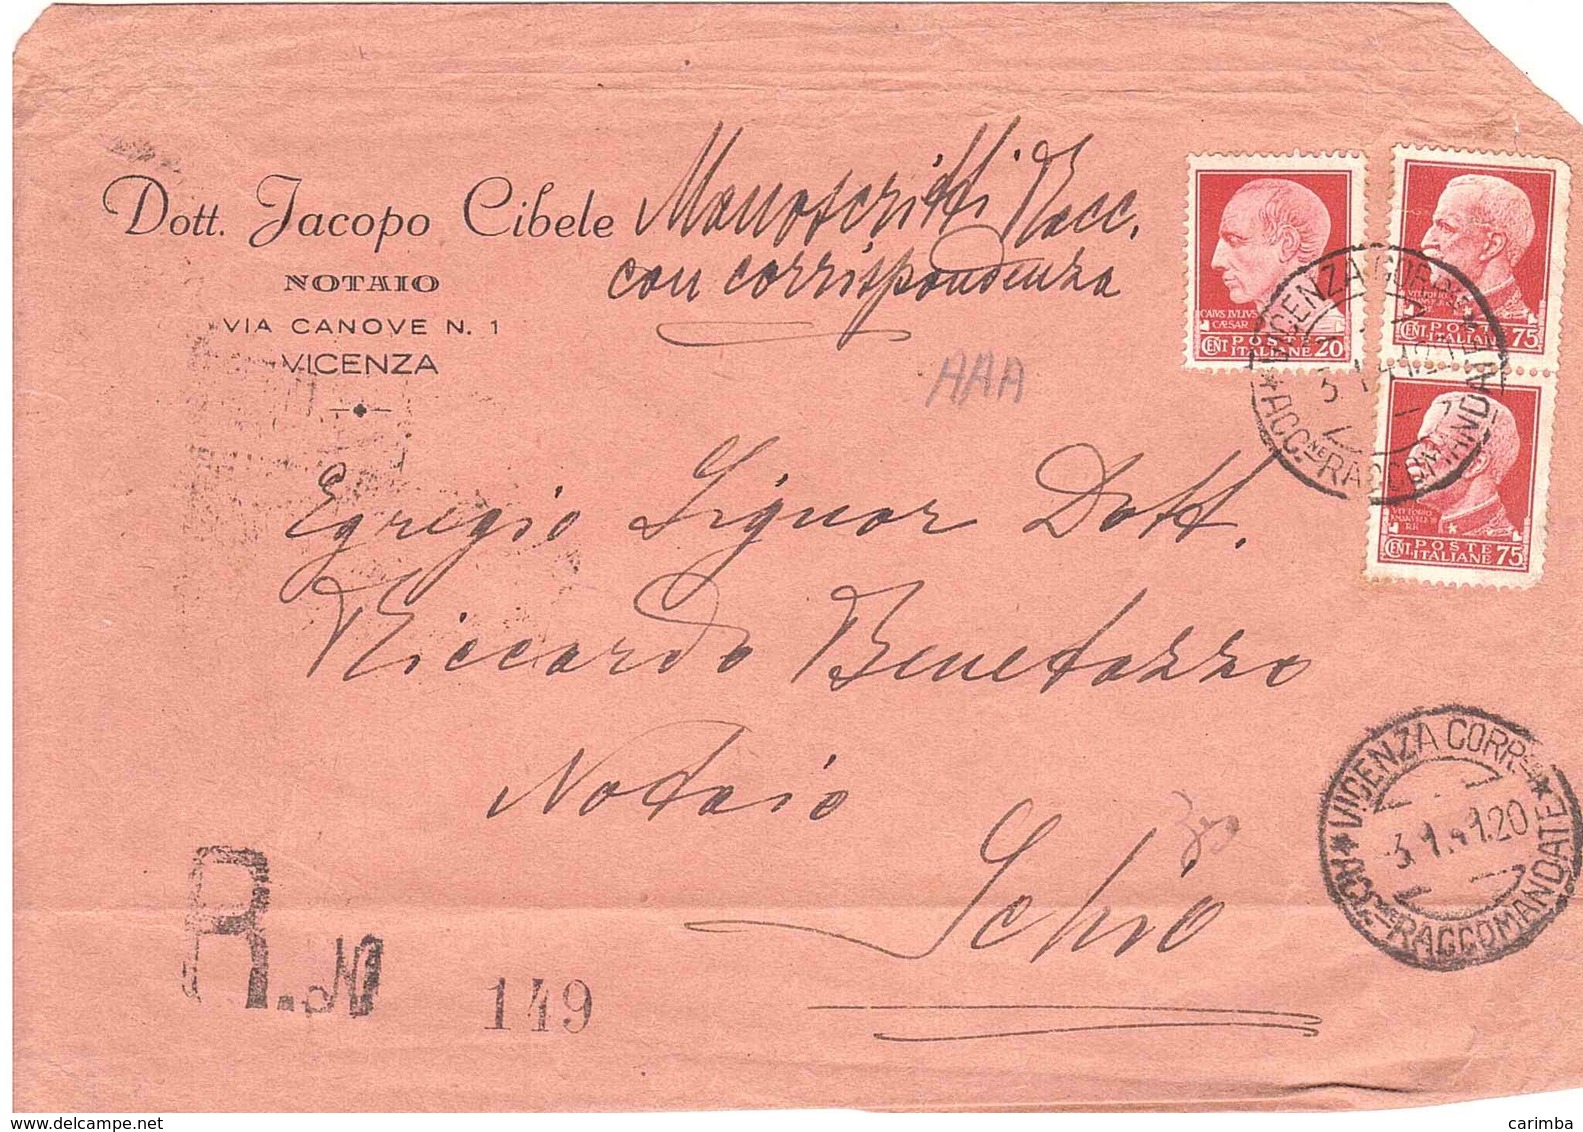 Dott. Jacopo Cibele
NOTAIO
VIA CANOVE N. 1
VICENZA
Manoscritti Racc.
con corrispondenza
AAA
CAIVS IVLIVS
CÆSAR
CENT. POSTE
ITALIANE 20
CENT. POSTE
ITALIANE 75
VITTORIO
EMANVELE III
RE
CENT. POSTE
ITALIANE 75
VICENZA CORR
ACC.NE RACCOMANDATE
Egregio Signor Dott.
Riccardo Benetazzo
Notaio
Schio
VICENZA CORR
-3.1.41.20
ACC.NE RACCOMANDATE
R. N
149
carimba